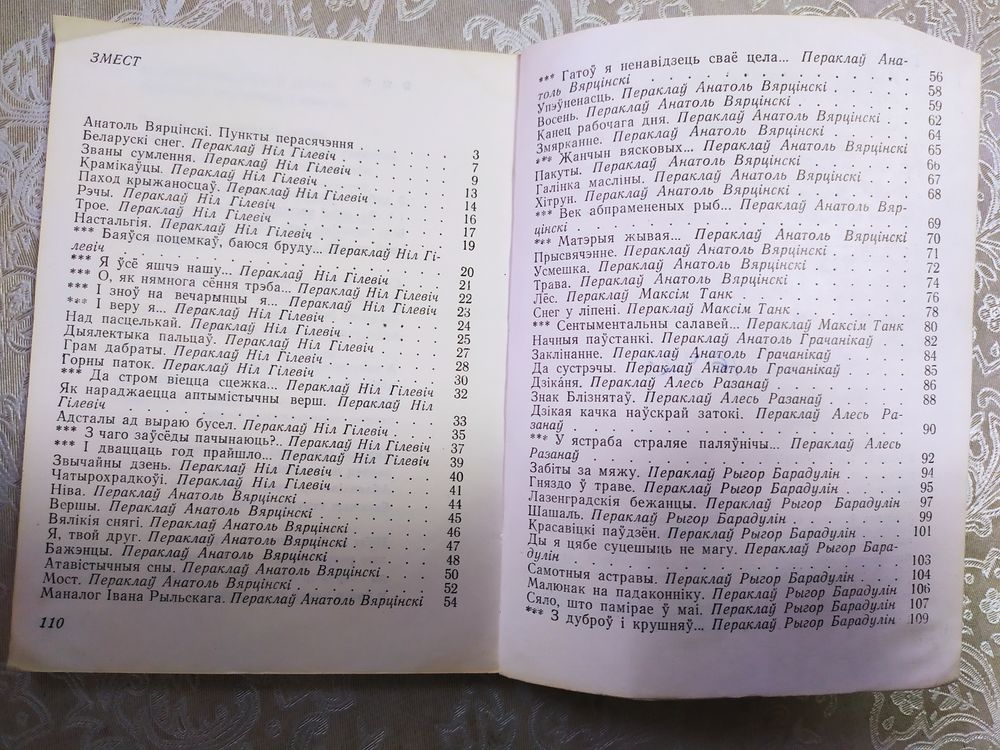 ЗМЕСТ
Анатоль Вярцінскі. Пункты перасячэння . . . . . . 3
Беларускі снег. Пераклаў Ніл Гілевіч . . . . . . 7
Званы сумлення. Пераклаў Ніл Гілевіч . . . . . . 9
Крамікаўцы. Пераклаў Ніл Гілевіч . . . . . . 13
Паход крыжаносцаў. Пераклаў Ніл Гілевіч . . . . . . 14
Рэчы. Пераклаў Ніл Гілевіч . . . . . . 16
Трое. Пераклаў Ніл Гілевіч . . . . . . 17
Настальгія. Пераклаў Ніл Гілевіч . . . . . . 19
*** Баяўся поцемкаў, баюся бруду... Пераклаў Ніл Гі-
левіч . . . . . . 20
*** Я ўсё яшчэ нашу... Пераклаў Ніл Гілевіч . . . 21
*** О, як нямнога сёння трэба... Пераклаў Ніл Гілевіч 22
*** І зноў на вечарынцы я... Пераклаў Ніл Гілевіч 23
*** І веру я... Пераклаў Ніл Гілевіч . . . . 24
Над пасцелькай. Пераклаў Ніл Гілевіч . . . . 25
Дыялектыка пальцаў. Пераклаў Ніл Гілевіч . . . . 27
Грам дабраты. Пераклаў Ніл Гілевіч . . . . 28
Горны паток. Пераклаў Ніл Гілевіч . . . . 30
*** Да стром віецца сцежка... Пераклаў Ніл Гілевіч 32
Як нараджаецца аптымістычны верш. Пераклаў Ніл
Гілевіч . . . . . . 33
Адсталы ад выраю бусел. Пераклаў Ніл Гілевіч . . 35
*** З чаго заўсёды пачынаюць?.. Пераклаў Ніл Гілевіч 37
*** І дваццаць год прайшло... Пераклаў Ніл Гілевіч 39
Звычайны дзень. Пераклаў Ніл Гілевіч . . . . 40
Чатырохрадкоўі. Пераклаў Ніл Гілевіч . . . . 41
Ніва. Пераклаў Анатоль Вярцінскі . . . . 44
Вершы. Пераклаў Анатоль Вярцінскі . . . . 45
Вялікія снягі. Пераклаў Анатоль Вярцінскі . . . . 46
Я, твой друг. Пераклаў Анатоль Вярцінскі . . . . 47
Бажэнцы. Пераклаў Анатоль Вярцінскі . . . . 48
Атавістычныя сны. Пераклаў Анатоль Вярцінскі . . . 50
Мост. Пераклаў Анатоль Вярцінскі . . . . 52
Маналог Івана Рыльскага. Пераклаў Анатоль Вярцінскі 54
110
*** Гатоў я ненавідзець сваё цела... Пераклаў Ана-
толь Вярцінскі . . . . . . 56
Упэўненасць. Пераклаў Анатоль Вярцінскі . . . . 58
Восень. Пераклаў Анатоль Вярцінскі . . . . 59
Канец рабочага дня. Пераклаў Анатоль Вярцінскі . . 62
Змярканне. Пераклаў Анатоль Вярцінскі . . . . 64
*** Жанчын вясковых... Пераклаў Анатоль Вярцінскі 65
Пакуты. Пераклаў Анатоль Вярцінскі . . . . 66
Галінка масліны. Пераклаў Анатоль Вярцінскі . . . 67
Хітрун. Пераклаў Анатоль Вярцінскі . . . . 68
*** Век абпрамененых рыб... Пераклаў Анатоль Вяр-
цінскі . . . . . . 69
*** Матэрыя жывая... Пераклаў Анатоль Вярцінскі 70
Прысвячэнне. Пераклаў Анатоль Вярцінскі . . . . 71
Усмешка. Пераклаў Анатоль Вярцінскі . . . . 72
Трава. Пераклаў Анатоль Вярцінскі . . . . 74
Лёс. Пераклаў Максім Танк . . . . 76
Снег у ліпені. Пераклаў Максім Танк . . . . 78
*** Сентыментальны салавей... Пераклаў Максім Танк 80
Начныя паўстанкі. Пераклаў Анатоль Грачанікаў . . 82
Заклінанне. Пераклаў Анатоль Грачанікаў . . . . 84
Да сустрэчы. Пераклаў Анатоль Грачанікаў . . . . 85
Дзікáня. Пераклаў Алесь Разанаў . . . . 86
Знак Блізнятаў. Пераклаў Алесь Разанаў . . . . 88
Дзікая качка наўскрай затокі. Пераклаў Алесь Ра-
занаў . . . . . . 90
*** У ястраба страляе паляўнічы... Пераклаў Алесь
Разанаў . . . . . . 92
Забіты за мяжу. Пераклаў Рыгор Барадулін . . . . 94
Гняздо ў траве. Пераклаў Рыгор Барадулін . . . . 95
Лазенградскія бежанцы. Пераклаў Рыгор Барадулін 97
Шашаль. Пераклаў Рыгор Барадулін . . . . 99
Красавіцкі паўдзён. Пераклаў Рыгор Барадулін . . . 101
Ды я цябе суцешыць не магу. Пераклаў Рыгор Бара-
дулін . . . . . . 103
Самотныя астравы. Пераклаў Рыгор Барадулін . . . 104
Малюнак на падаконніку. Пераклаў Рыгор Барадулін 106
Сяло, што памірае ў маі. Пераклаў Рыгор Барадулін . 107
*** З дуброў і крушняў... Пераклаў Рыгор Барадулін 109